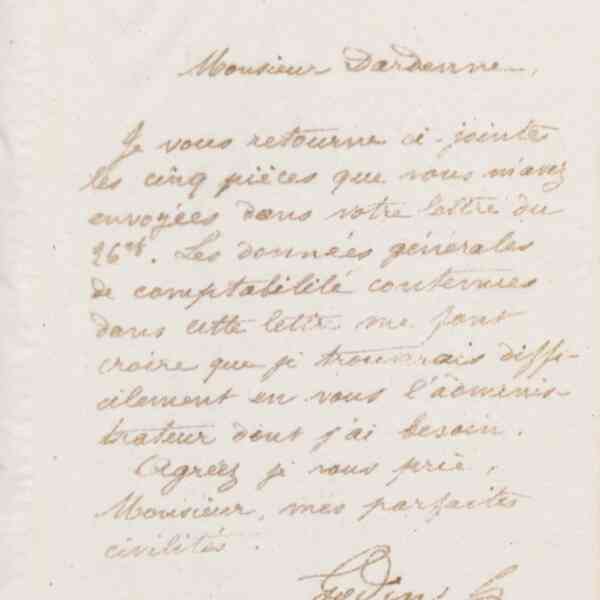 Monsieur Dardenne,
Je vous retourne ci-jointes
les cinq pièces que vous m'avez
envoyées dans votre lettre du
26 ct. Les données générales
de comptabilité contenues
dans cette lettre me font
croire que je trouverais diffi-
cilement en vous l'adminis-
trateur dont j'ai besoin.
Agréez je vous prie,
Monsieur, mes parfaites
civilités.
Godin